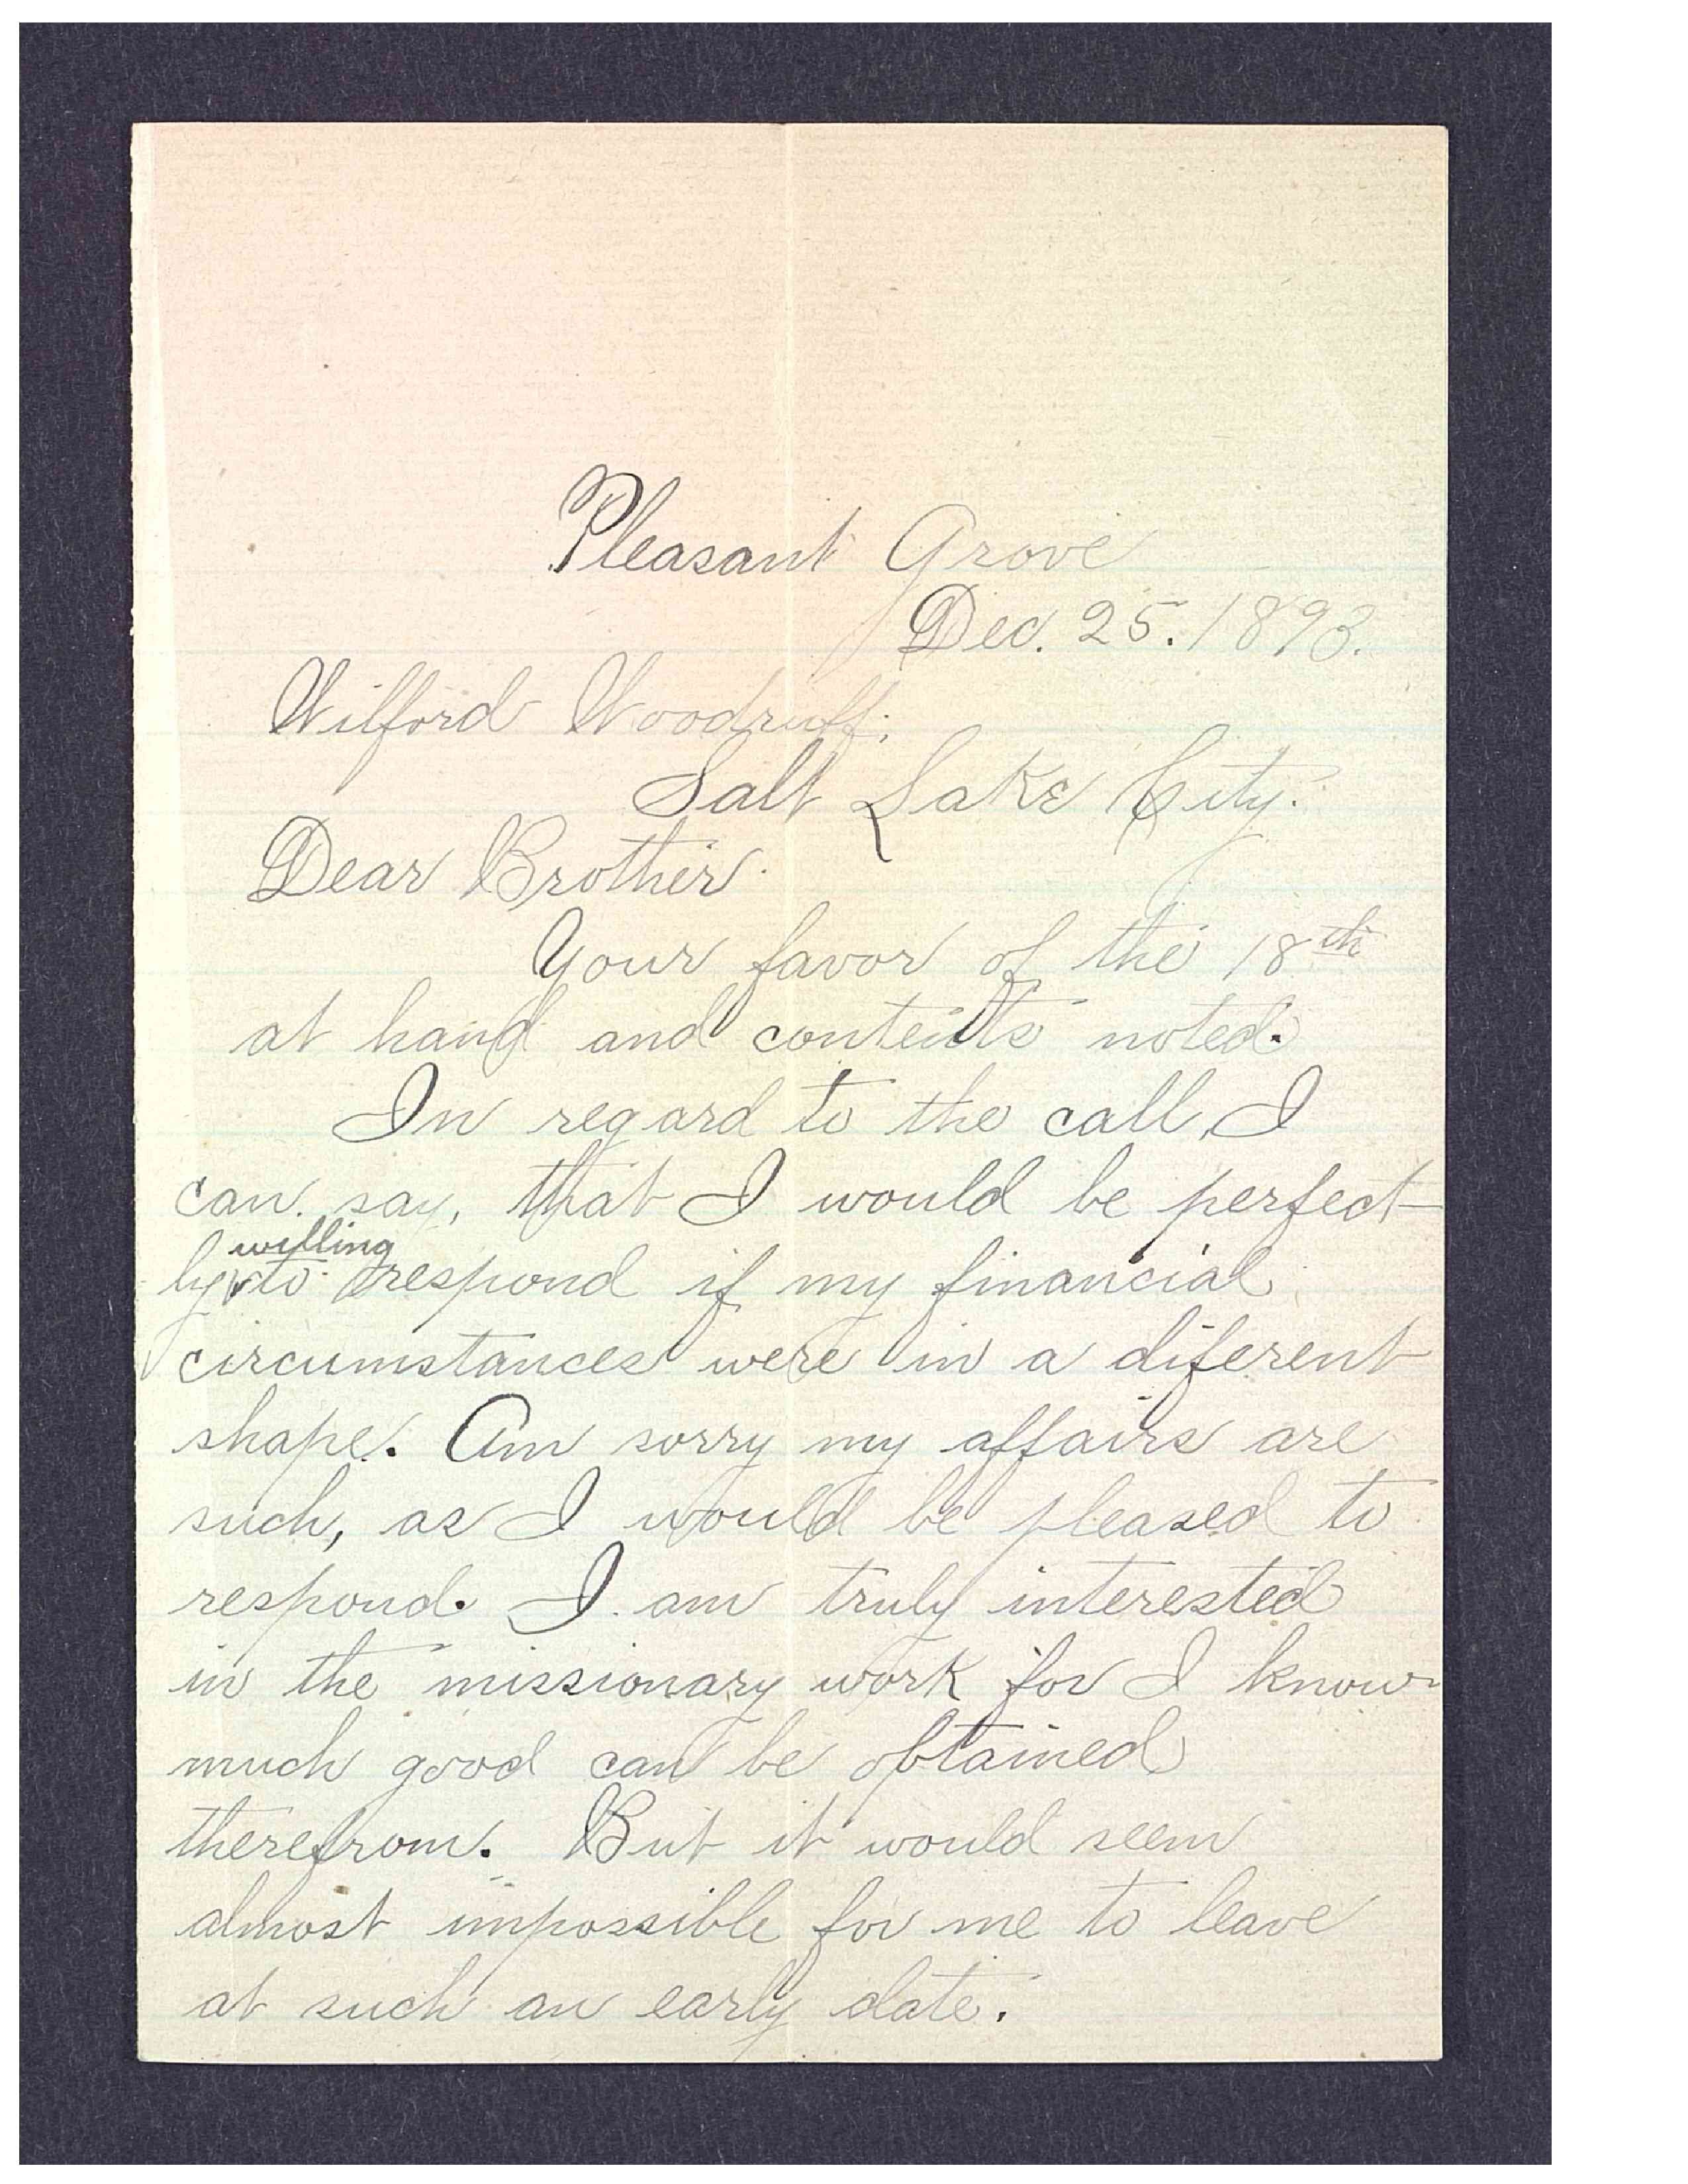 Pleasant Grove
Dec. 25. 1893.
Wilford Woodruff;
Salt Lake City.
Dear Brother.
Your favor of the 18th
at hand and contents noted.
In regard to the call, I
can say, that I would be perfect-
willing
ly to respond if my financial
circumstances were in a diferent
shape. Am sorry my affairs are
such, as I would be pleased to
respond. I am truly interested
in the missionary work for I know
much good can be obtained
therefrom. But it would seem
almost impossible for me to leave
at such an early date.